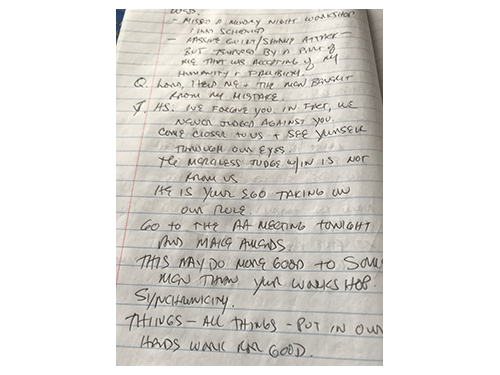 WED.
- MISSED A MONDAY NIGHT WORKSHOP
I HAD SCHEDULED
- MASSIVE GUILT/SHAME ATTACK -
BUT BY A PART OF
ME THAT WAS ACCEPTING OF MY
HUMANITY + FALLIBILITY.
Q. LORD, HELP ME + THE MEN BENEFIT
FROM MY MISTAKE.
HS: WE FORGIVE YOU. IN FACT, WE
NEVER JUDGED AGAINST YOU.
COME CLOSER TO US + SEE YOURSELF
THROUGH OUR EYES.
THE MERCILESS JUDGE W/IN IS NOT
FROM US
HE IS YOUR EGO TAKING ON
OUR ROLE.
GO TO THE AA MEETING TONIGHT
AND MAKE AMENDS.
THIS MAY DO MORE GOOD TO SOME
MEN THAN YOUR WORKSHOP.
SYNCHRONICITY.
THINGS - ALL THINGS - PUT IN OUR
HANDS WORK FOR GOOD.